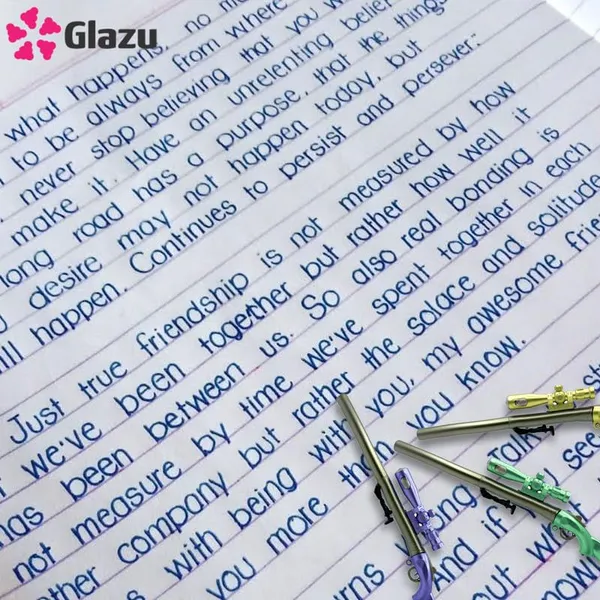 Glazu
what happens, no
to be always from where
never stop believing that you
make it. Have an unrelenting belief
long road has a purpose, that the things
desire may not happen today, but
ill happen. Continues to persist and persever."
Just true friendship is not measured by how
we've been together but rather how well it
has been between us. So also real bonding is
not measure by time we've spent together in each
other company but rather the solace and solitude
with being with you, my awesome
you more then you know.
And if